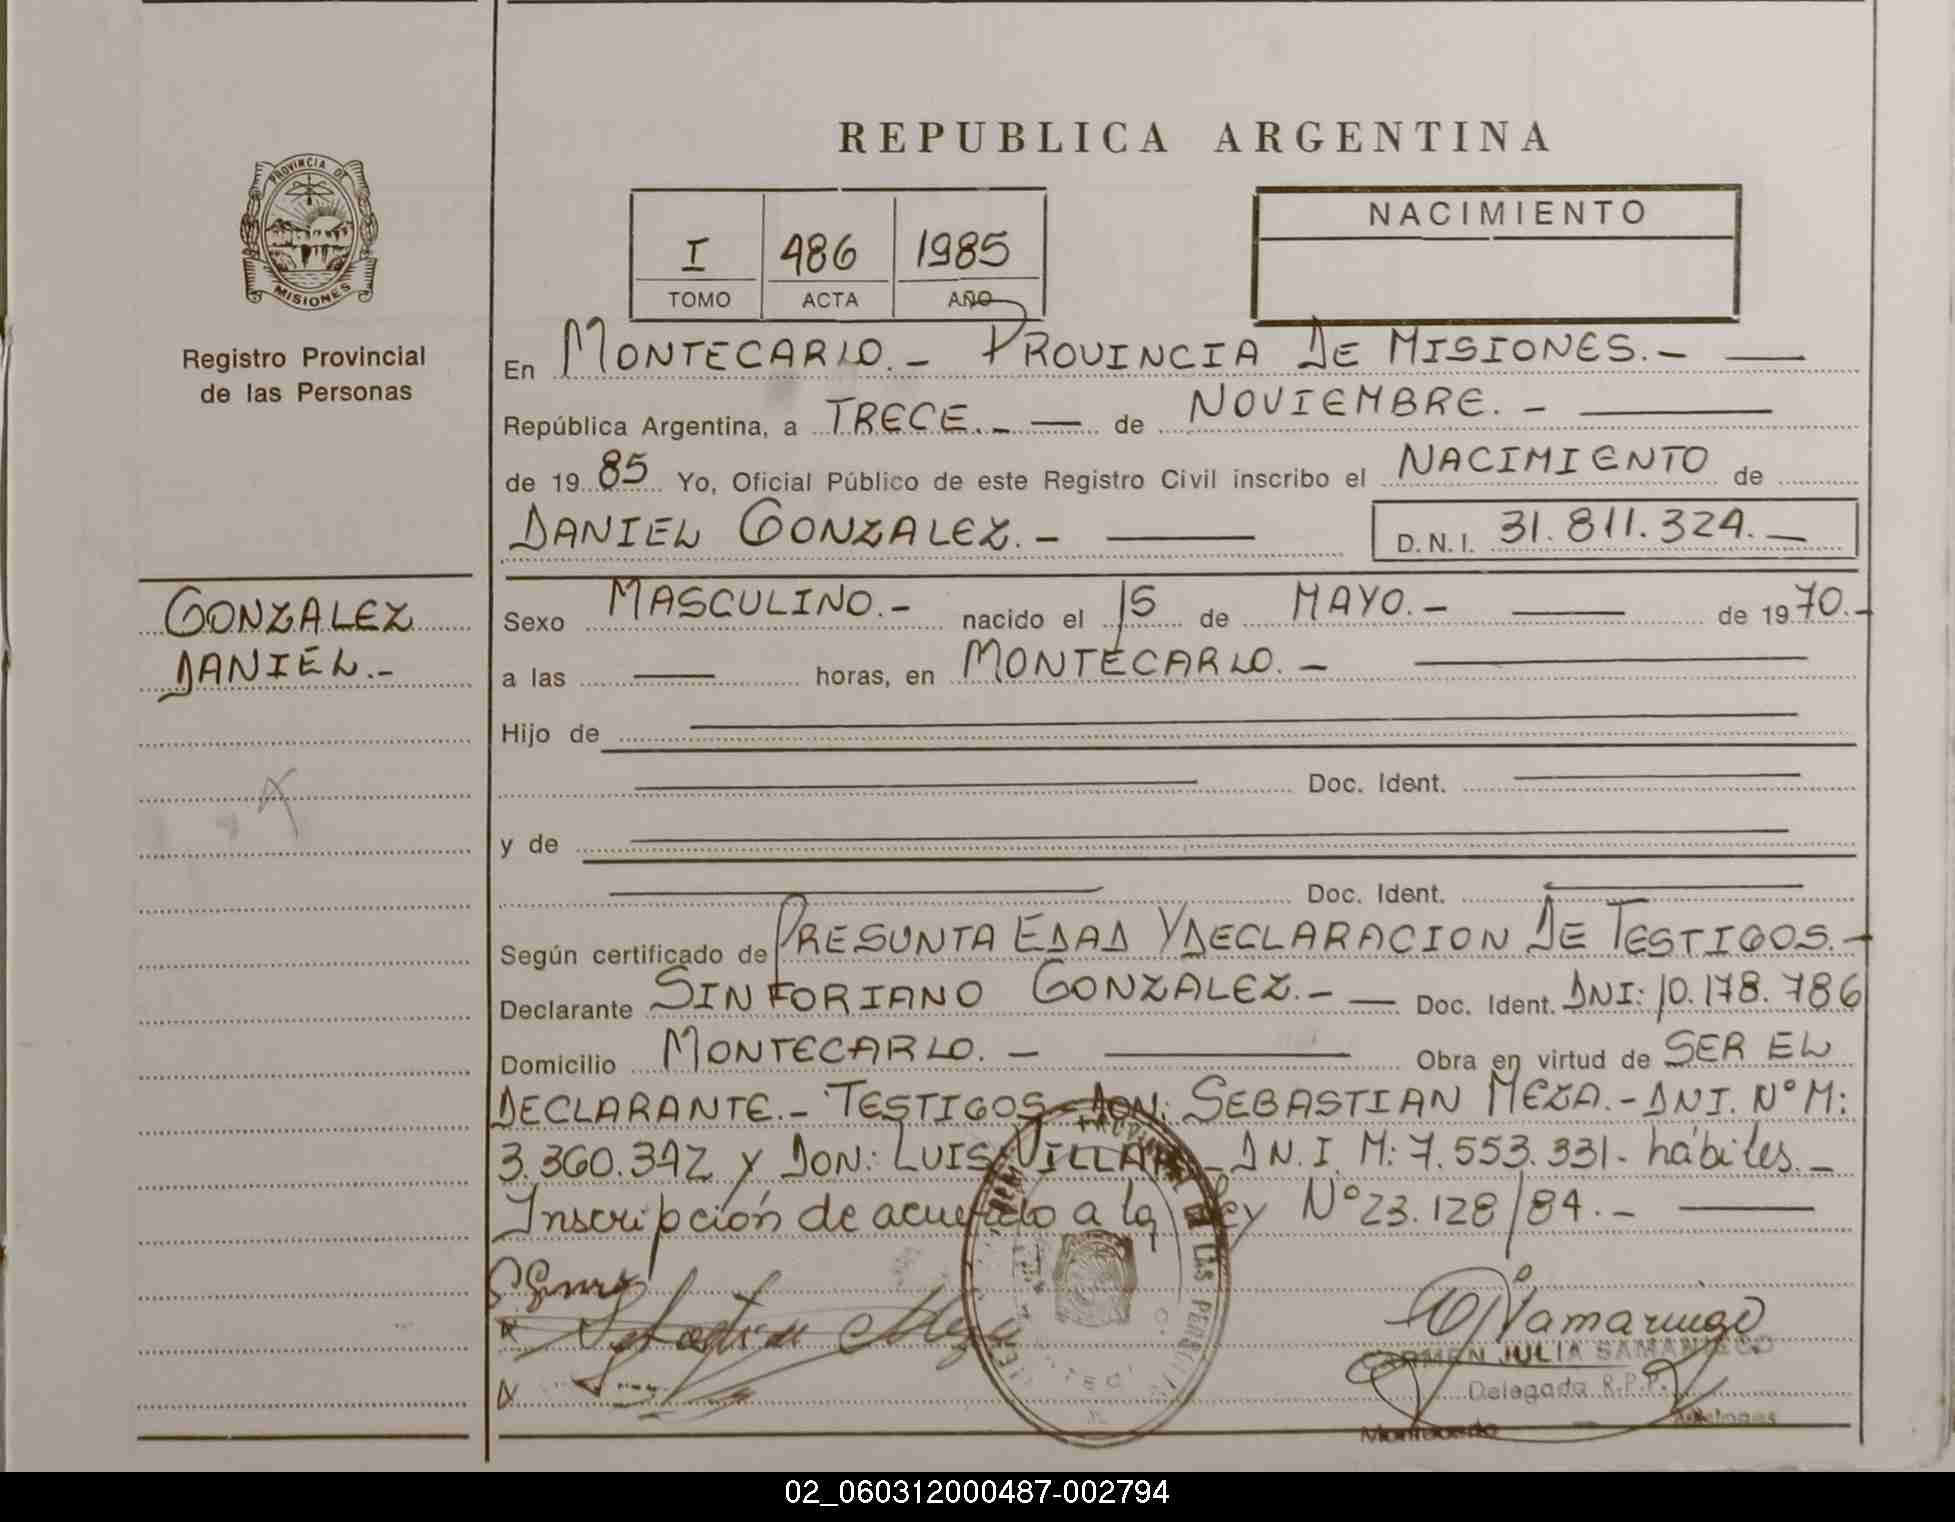 REPUBLICA ARGENTINA
PROVINCIA DE
MISIONES
Registro Provincial
de las Personas
I 486 1985
TOMO ACTA AÑO
NACIMIENTO
En MONTECARLO.- PROVINCIA DE MISIONES.-
República Argentina, a TRECE.- de NOVIEMBRE.-
de 19 85 Yo, Oficial Público de este Registro Civil inscribo el NACIMIENTO de
DANIEL GONZALEZ.- D.N.I. 31.811.324.-
GONZALEZ
DANIEL.-
Sexo MASCULINO.- nacido el 15 de MAYO.- de 19 70.-
a las horas, en MONTECARLO.-
Hijo de
Doc. Ident.
y de
Doc. Ident.
Según certificado de PRESUNTA EDAD Y DECLARACION DE TESTIGOS.-
Declarante SINFORIANO GONZALEZ.- Doc. Ident. DNI: 10.178.786
Domicilio MONTECARLO.- Obra en virtud de SER EL
DECLARANTE.- TESTIGOS DON: SEBASTIAN MEZA.- DNI. N° M:
3.360.342 y DON: LUIS VILLAR D N.I. M: 7.553.331- hábiles.-
Inscripción de acuerdo a la Ley N° 23.128/84.-
Sebastian Meza
CARMEN JULIA SAMANIEGO
Delegada R.P.P.
Montecarlo Misiones
02_060312000487-002794